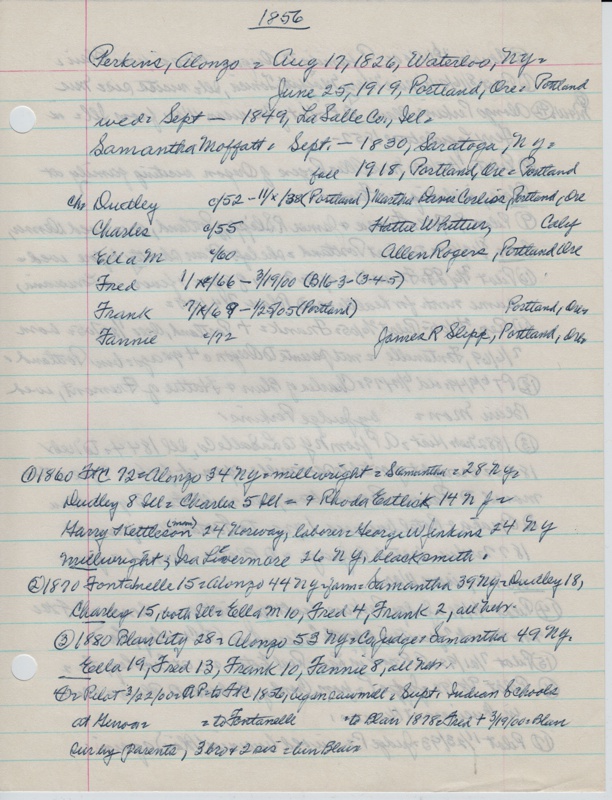 1856
Perkins, Alonzo = Aug 17, 1826, Waterloo, NY =
June 25, 1919, Portland, Ore = Portland
wed = Sept — 1849, LaSalle Co., Ill =
Samantha Moffatt = Sept. — 1830, Saratoga, NY =
fall 1918, Portland, Ore = Portland
ch. Dudley c/52 - 11/x/38 (Portland) Martha Corliss, Portland, Ore
Charles c/55 Hattie Whittier, Calif
Ella M c/60 Allen Rogers, Portland Ore
Fred 1/x/66 - 3/19/00 (B16-3-(3-4-5)
Frank 7/x/69 - 1/25/05 (Portland) Portland, Ore
Fannie c/72 James R Slipp, Portland, Ore
① 1860 FtC 72 = Alonzo 34 NY = millwright = Samantha = 28 NY =
Dudley 8 Ill = Charles 5 Ill = & Rhoda Eastlick 14 NY =
Harry Kettleson 24 Norway, laborer = George W Jenkins 24 NY
millwright & Ira Livermore 26 NY, blacksmith.
② 1870 Fontanelle 15 = Alonzo 44 NY = farm = Samantha 39 NY = Dudley 18,
Charley 15, both Ill = Ella M 10, Fred 4, Frank 2, all Neb.
③ 1880 Blair City 28 = Alonzo 53 NY = Co Judge = Samantha 49 NY =
Ella 19, Fred 13, Frank 10, Fannie 8, all Neb.
Pilot 3/22/00 = to FtC 1856, sawmill = Supt. Indian Schools
at = to Fontanelle = to Blair 1878 = Fred + 3/19/00 = Blair
sur by parents, 3 bro & 2 sis = bur Blair